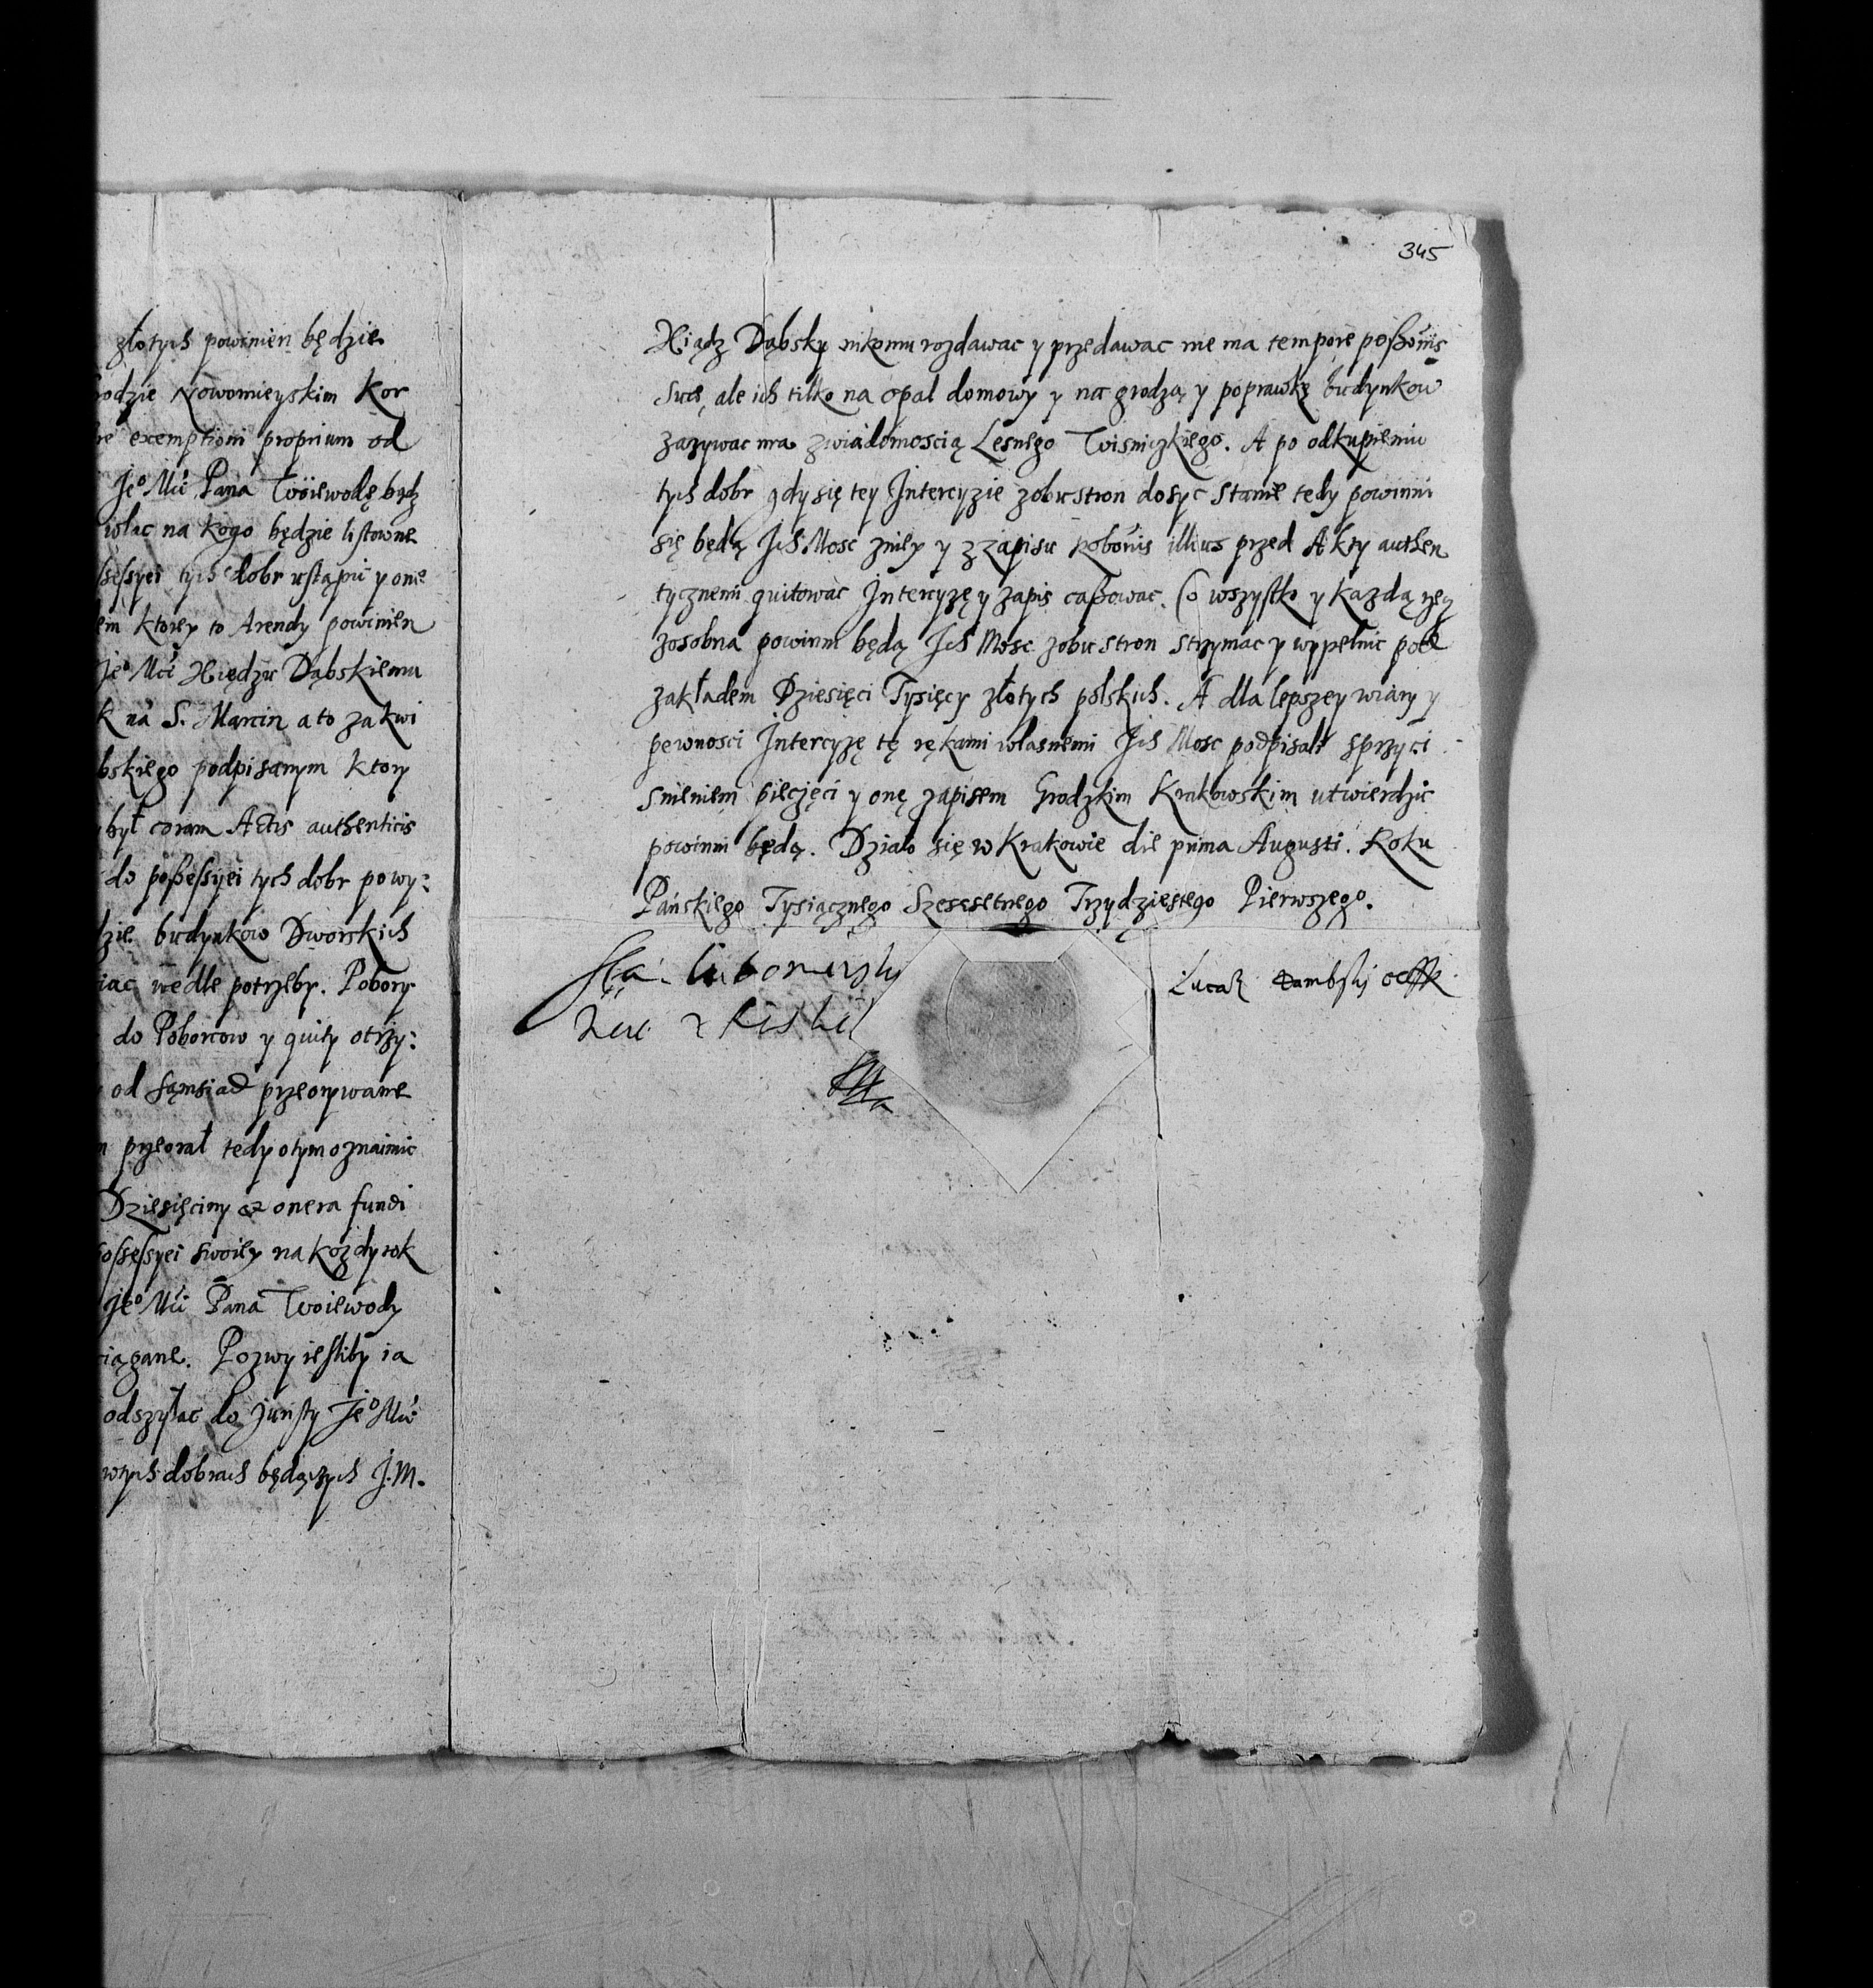 złotych powinien będzie
odzie Nowomieyskim Kor
exemptiom proprium od
Je° Mci Pana Woiewodę bądz
wolac na kogo będzie listowne
ssessyei tych dobr ustąpic y one
em ktorey to Arendy powinien
Je° Mci Xiędzu Dąbskiemu
k na S. Marcin a to za kwi
bskiego podpisanym ktory
był coram Actis authenticis
do possessyei tych dobr powy:
dzie budynkow Dworskich
iac wedle potrzeby. Pobory
do Poborcow y quity otrzy:
od Sąmsiad przeorywane
przeorał tedy otym oznaimic
Dziesięciny et onera fundi
ossessyei swoiey na kozdy rok
Je° Mci Pana Woiewody
iągane. Pozwy iesliby ia
odszyłac do Juristy Je° Mci
wtych dobrach będących J.M.
345
Xiądz Dąbsky nikomu rozdawac y przedawac nie ma tempore possonis
suę, ale ich tilko na opal domowy y na grodzą y poprawkę budynkow
zazywac ma zwiadomoscią Lesnego Wisniczkiego. A po odkupieniu
tych dobr gdy się tey Intercyzie zobustron dosyc stanie tedy powinni
się będą Ich Mosc zniey y z zapisu robonis illius przed Akty authen
tycznemi quitowac Intercyzę y zapis cassowac. Co wszystko y kazdą rzecz
zosobna powinni będą Ich Mosc zobu stron strzymac y wypełnic pod
zakładem Dziesięci Tysięcy złotych polskich. A dla lepszey wiary y
pewnosci Intercyzę tę rękami własnemi Ich Mosc podpisali sprzyci
snieniem pieczęci y onę zapisem Grodzkim Krakowskim utwierdzic
powinni będą. Działo się w Krakowie die prima Augusti. Roku
Pańskiego Tysiącznego Szescsetnego Trzydziestego Pierwszego.
Sta. Lubomirski
Lucasz Dambskj